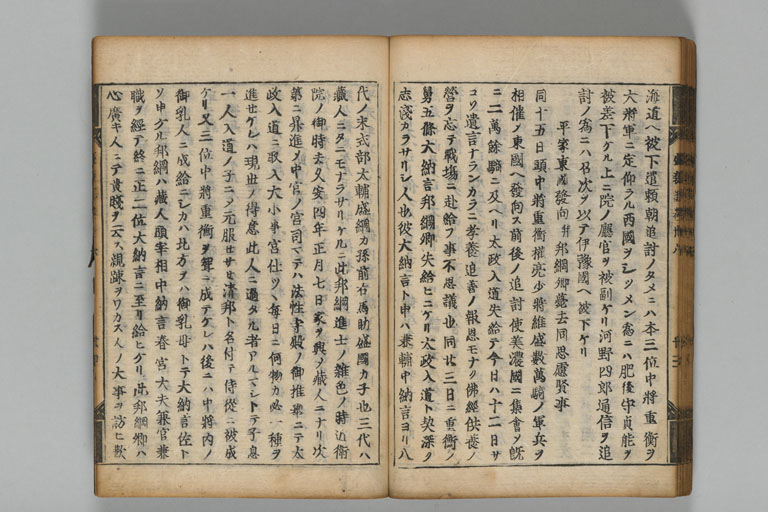 海道ヘ被下遣頼朝追討ノタメニハ本三位中将重衡ヲ
大将軍ニ定仰ラル西國ヲシツメン為ニハ肥後守貞能ヲ
被差下ケル上ニ院ノ廳官ヲ被副ケリ河野四郎通信ヲ追
討ノ為ニハ召次ヲ以テ伊豫國ヘ被下ケリ
平家東國發向并邦綱卿薨去同思慮賢事
同十五日頭中将重衡權亮少将維盛數萬騎ノ軍兵ヲ
相催ノ東國ヘ發向ス前後ノ追討使美濃國ニ集會ヲ既
ニ二萬餘騎ニ及ヘリ太政入道失給テ今日ハ十二日サ
コソ遺言ナランカラニ孝養追善ノ報恩モナク佛經供養ノ
營ヲ忘テ戰場ニ赴給フ事不思議也同廿三日ニ重衡ノ
舅五條大納言邦綱卿失給ヒニケリ太政入道ト契深ク
志浅カラサリシ人也彼大納言ト申ハ兼輔中納言ヨリ八
代ノ末式部大輔盛綱カ孫前右馬助盛國カ子也三代ハ
蔵人ニタニモナラサリケルニ此邦綱進士ノ雜色ノ時近衛
院ノ御時去久安四年正月七日家ヲ興ノ蔵人ニナリ次
第ニ昇進ノ中宮ノ宮司マテハ法性寺殿ノ御推擧ニテ太
政入道ニ取入大小事宮仕ツヽ毎日ニ何物カ必一種ヲ
進セケレハ現世ノ得意此人ニ過タル者アルマシトテ子息
一人入道ノ子ニメ元服セサセ清邦ト名付テ侍従ニ被成
ケリ又三位中将重衡ヲ聟ニ成テケレハ後ニハ中将内ノ
御乳人ニ成給ニシカハ北方ヲハ御乳母トテ大納言佐ト
ソ申ケル邦綱ハ蔵人頭宰相中納言春宮大夫兼官兼
職ヲ經テ終ニ正二位大納言ニ至リ給ヒケリ此邦綱卿ハ
心廣キ人ニテ貴賤ヲ云ス親疎ヲワカス人ノ大事ヲ訪ヒ歎